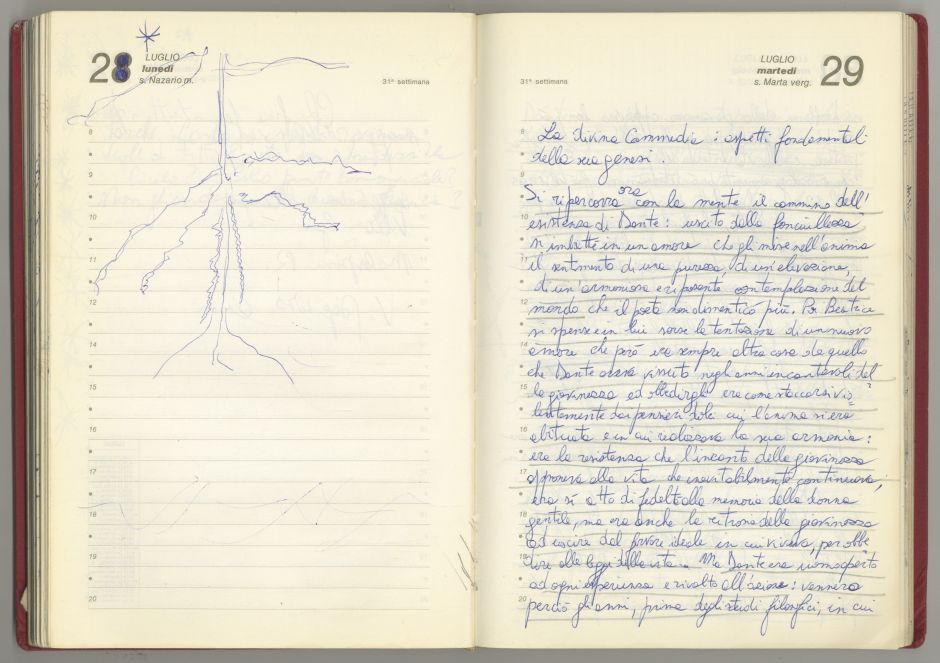 28
LUGLIO
lunedì
s. Nazario m.
31ª settimana
8
9
10
11
12
13
14
15
16
17
18
19
20
31ª settimana
LUGLIO
martedì
s. Marta verg.
29
8
9
10
11
12
13
14
15
16
17
18
19
20
La Divina Commedia : aspetti fondamentali
della sua genesi.
Si ripercorra ora con la mente il cammino dell'
esistenza di Dante : uscito dalla fanciullezza
si imbatte in un amore che gli mise nell'anima
il sentimento di una purezza, di un'elevazione,
di un'armoniosa e riposante contemplazione del
mondo che il poeta non dimenticò più. Poi Beatrice
si spense e in lui sorse la tentazione di un nuovo
amore che però era sempre altra cosa da quello
che Dante aveva vissuto negli anni incantevoli del
la giovinezza ed obbedirgli era come staccarsi vio
lentemente dai pensieri dolci cui l'anima si era
abituata e in cui realizzava la sua armonia :
era la resistenza che l'incanto della giovinezza
opponeva alla vita che inevitabilmente continuava;
era sì atto di fedeltà alla memoria della donna
gentile, ma era anche la della giovinezza
ad uscire dal fervore ideale in cui viveva, per obbe
dire alle leggi della vita. Ma Dante era uomo aperto
ad ogni esperienza e rivolto all'azione : vennero
perciò gli anni, prima degli studi filosofici, in cui